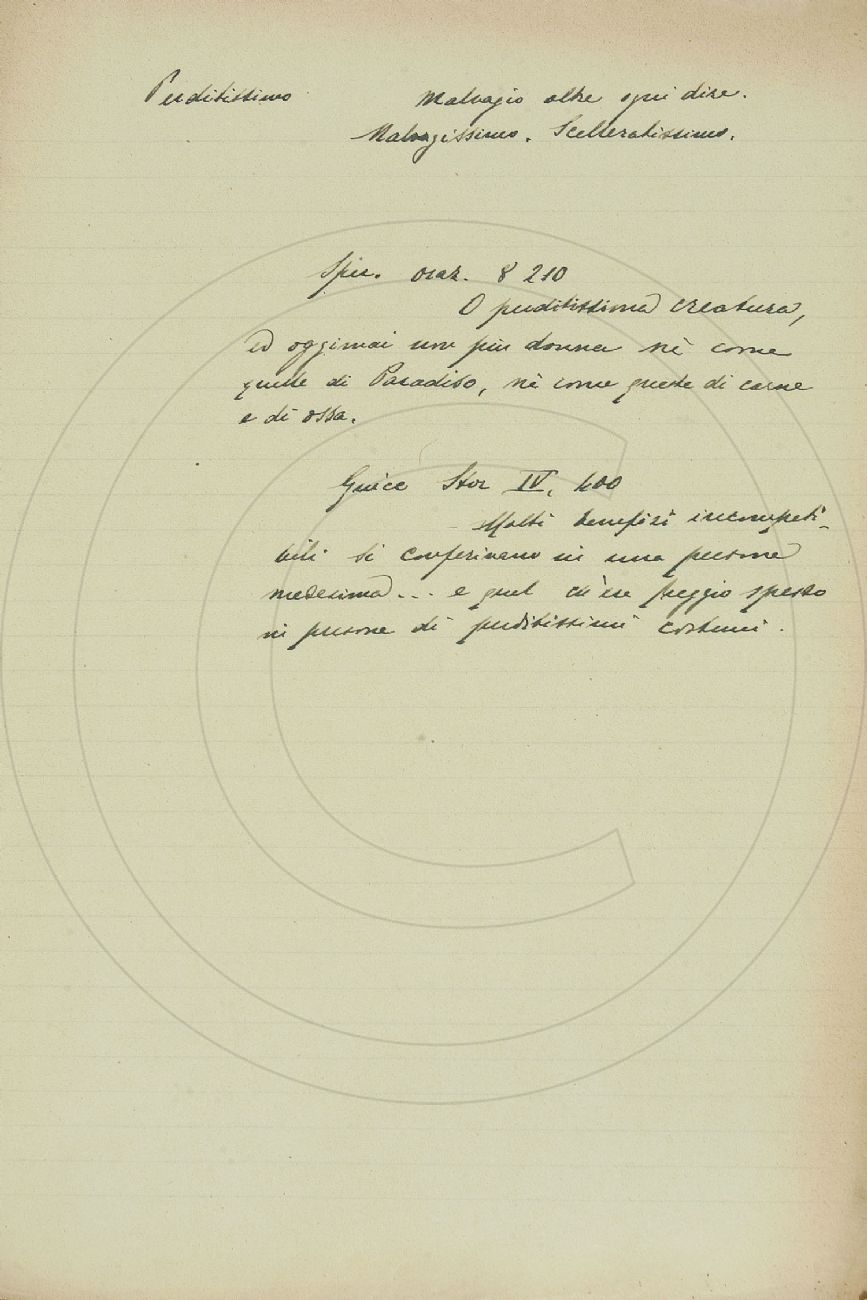 Perditissimo Malvagio oltre ogni dire.
Malvagissimo. Scelleratissimo.
Spir. oraz. 8 210
O perditissima creatura,
ed oggimai non più donna nè come
quelle di Paradiso, nè come queste di carne
e di ossa.
Guicc Stor IV, 400
Molti benefizi incompati-
bili si conferivano in una persona
medesima... e quel ch'era peggio spesso
in persone di perditissimi costumi.